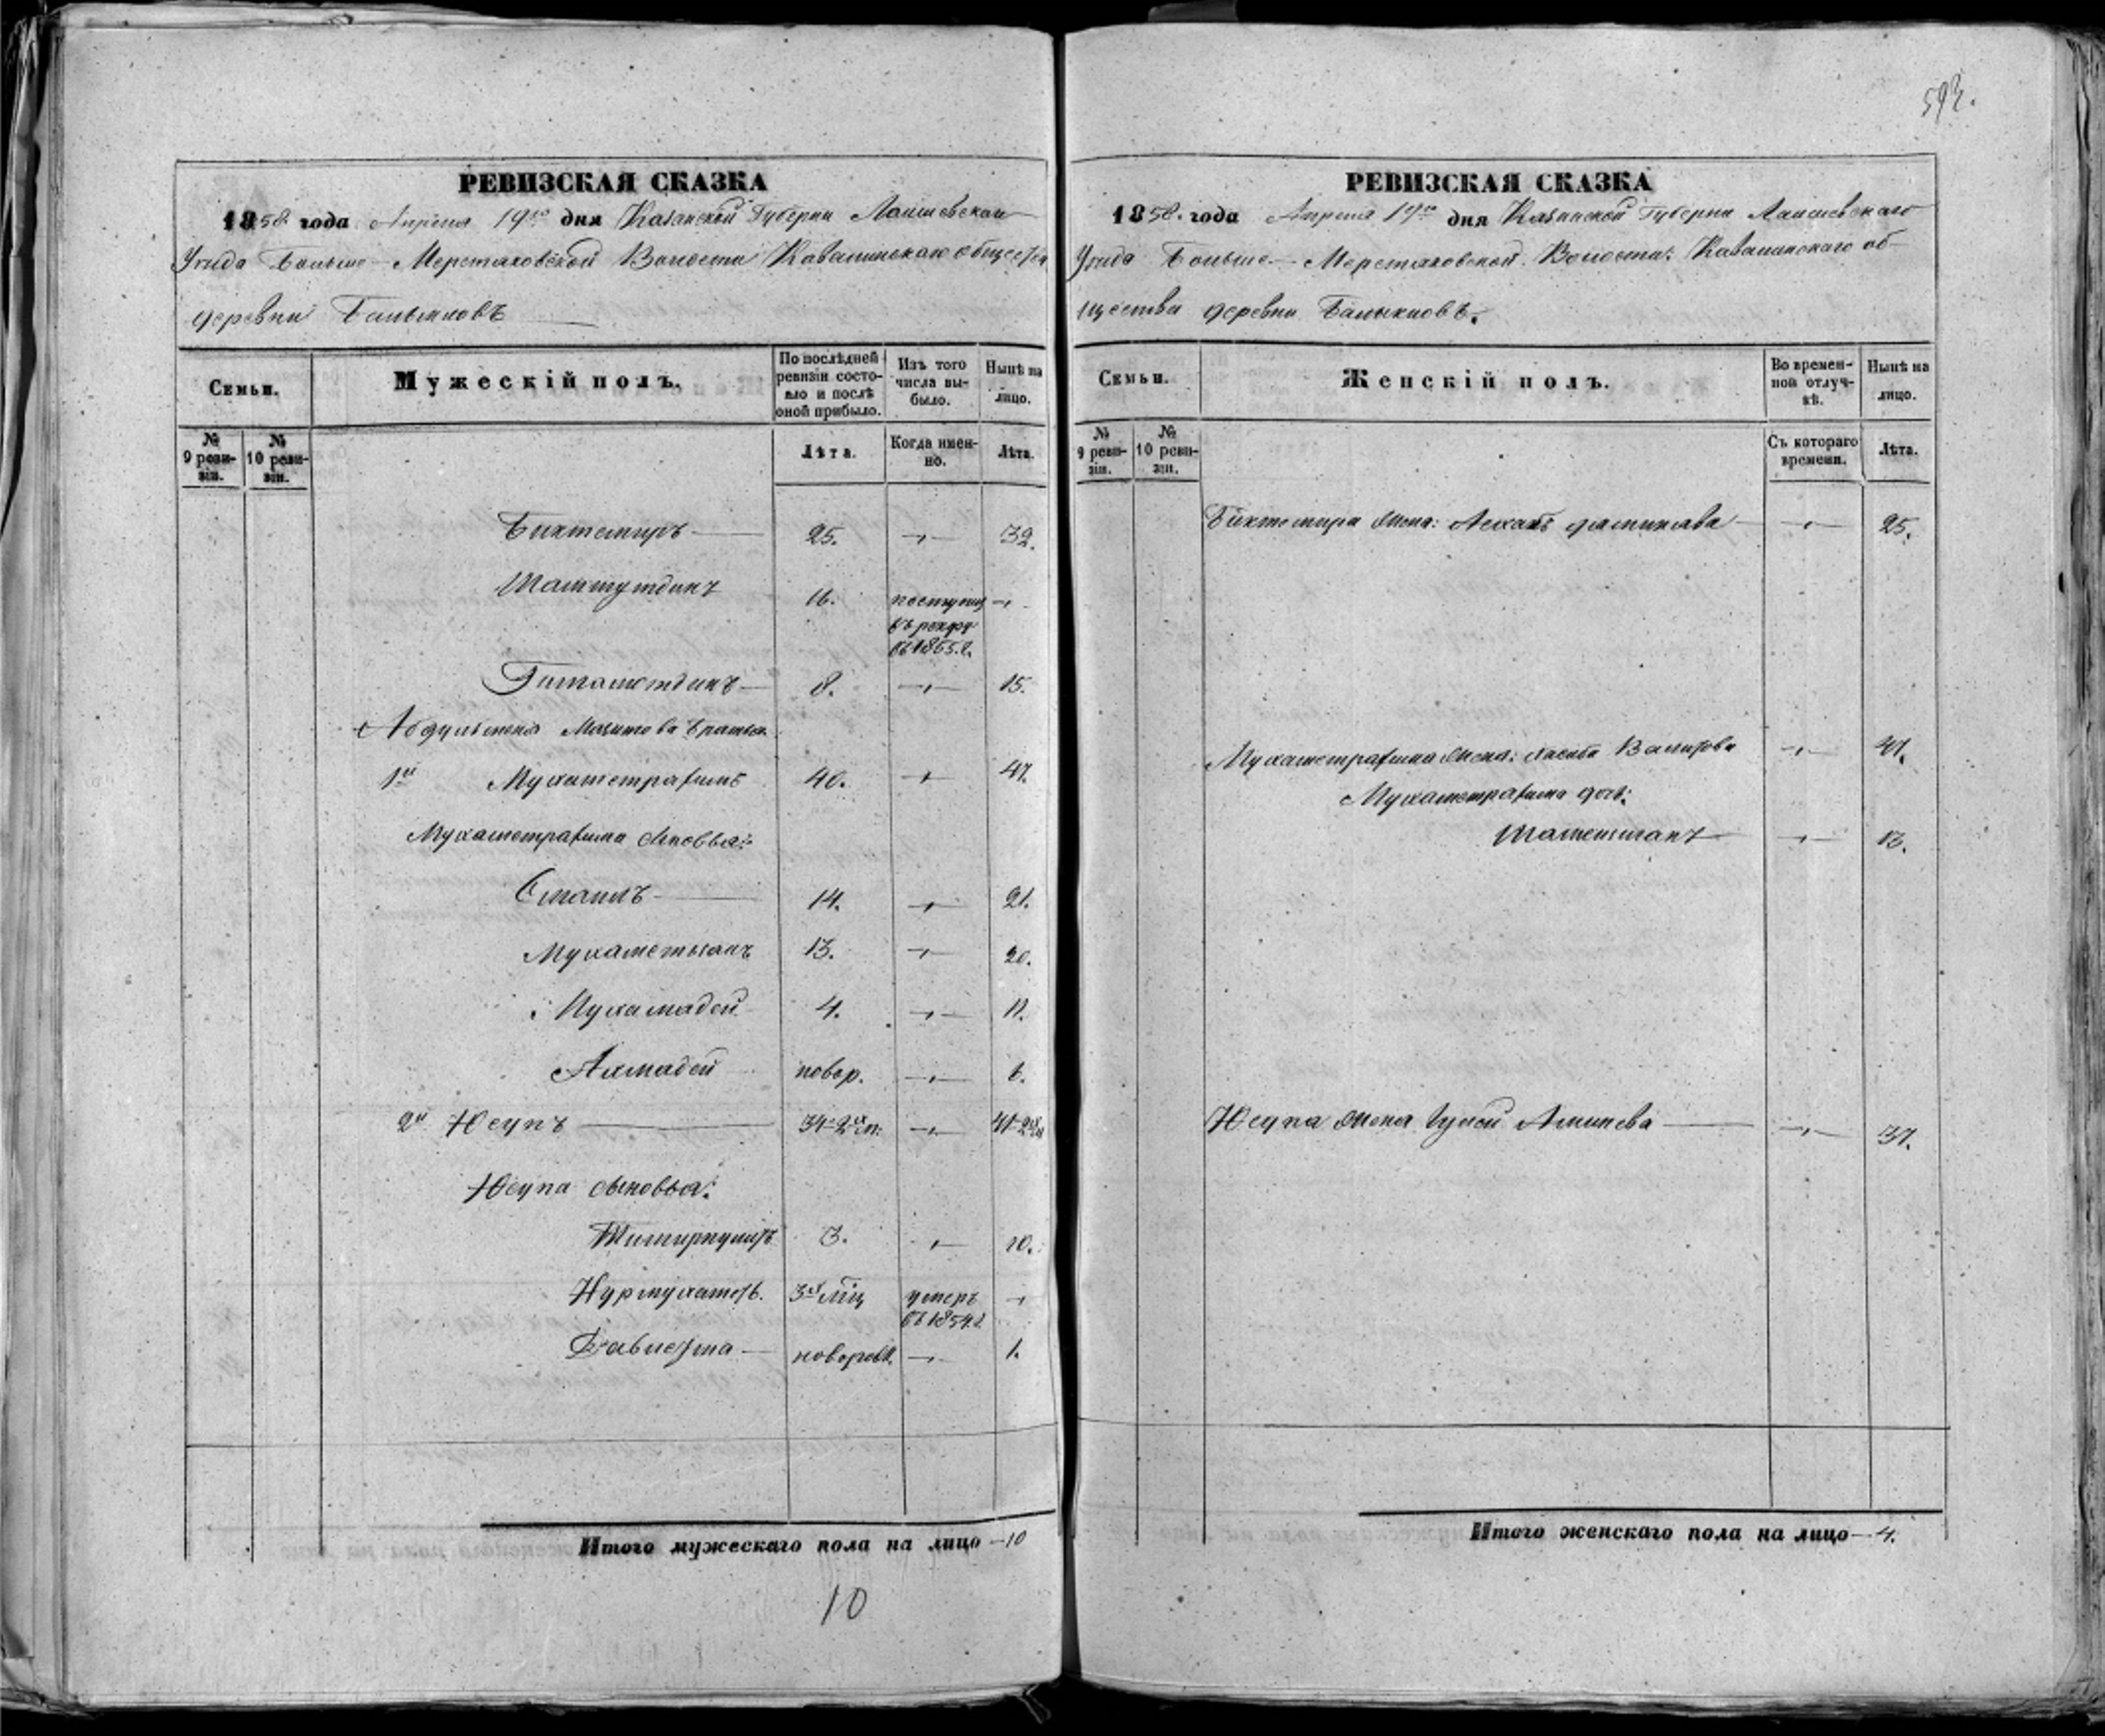 593.
РЕВИЗСКАЯ СКАЗКА
1858 года Апреля 19го дня Казанской Губерни Лаишевскаго
Уезда Больше-Меретяковской Волости Кавалинскаго общества
деревни Балыклов
Семьи.
Мужескій полъ.
По послѣдней ревизіи состояло и послѣ оной прибыло.
Изъ того числа выбыло.
Нынѣ на лицо.
№ 9 ревизіи.
№ 10 ревизіи.
Лѣта.
Когда именно.
Лѣта.
Биктемиръ 25. 32.
16. поступил
въ рекру
въ 1855.г.
8. 15.
братья
1й Мухаметрахимъ 40. 47.
Мухаметрахима сыновья:
Смаилъ 14. 21.
Мухаметьянъ 13. 20.
Мухамадей 4. 11.
Ахмадей новор. 6.
2й Юсупъ 34-2 41-2
Юсупа сыновья:
3. 10.
Нурмухаметъ. 3х мѣц умеръ
въ 1854.г
Давлетша новорожд. 1.
Итого мужескаго пола на лицо 10
10
РЕВИЗСКАЯ СКАЗКА
1858. года Апреля 19го дня Казанской Губерни Лаишевскаго
Уезда Больше-Меретяковской Волости: Кавалинскаго об-
щества деревни Балыклов
Семьи.
Женскій полъ.
Во временной отлучкѣ.
Нынѣ на лицо.
№ 9 ревизіи.
№ 10 ревизіи.
Съ котораго времени.
Лѣта.
Биктемира жена: 25.
Мухаметрахима жена: Валитова 47.
Мухаметрахима дочь:
13.
Юсупа жена Аминева 37.
Итого женскаго пола на лицо 4.